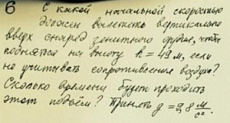 6 С какой начальной скоростью
должен вылететь вертикально
вверх снаряд зенитного орудия, чтобы
подняться на высоту h = 43 м, если
не учитывать сопротивления воздуха?
Сколько времени будет проходить
этот подъём? Принять g = 9,8 м/с²